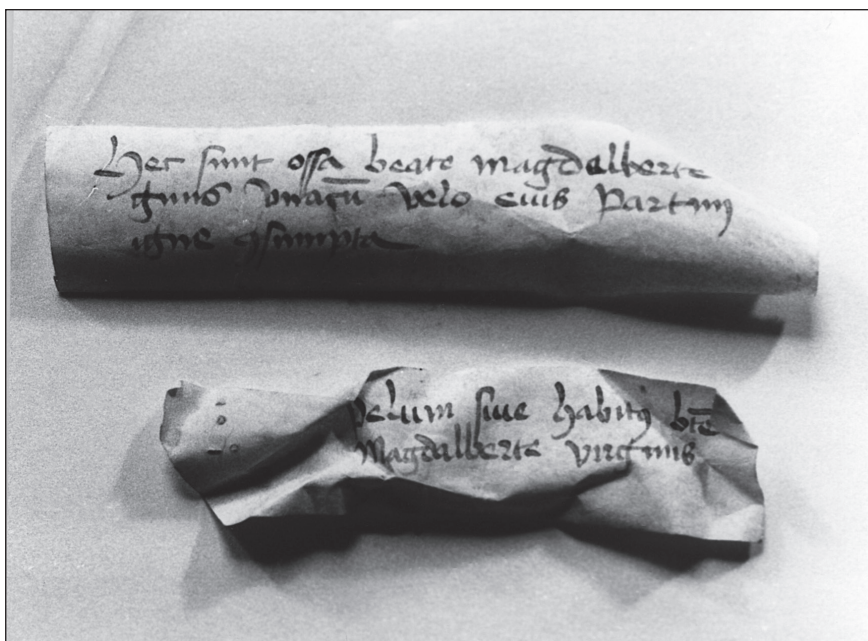 Hec sunt ossa beate magdalberte
ginis vnacū velo eius Partim
igne ꝯsumpta
velum siue habitꝰ btē
Magdalberte virginis